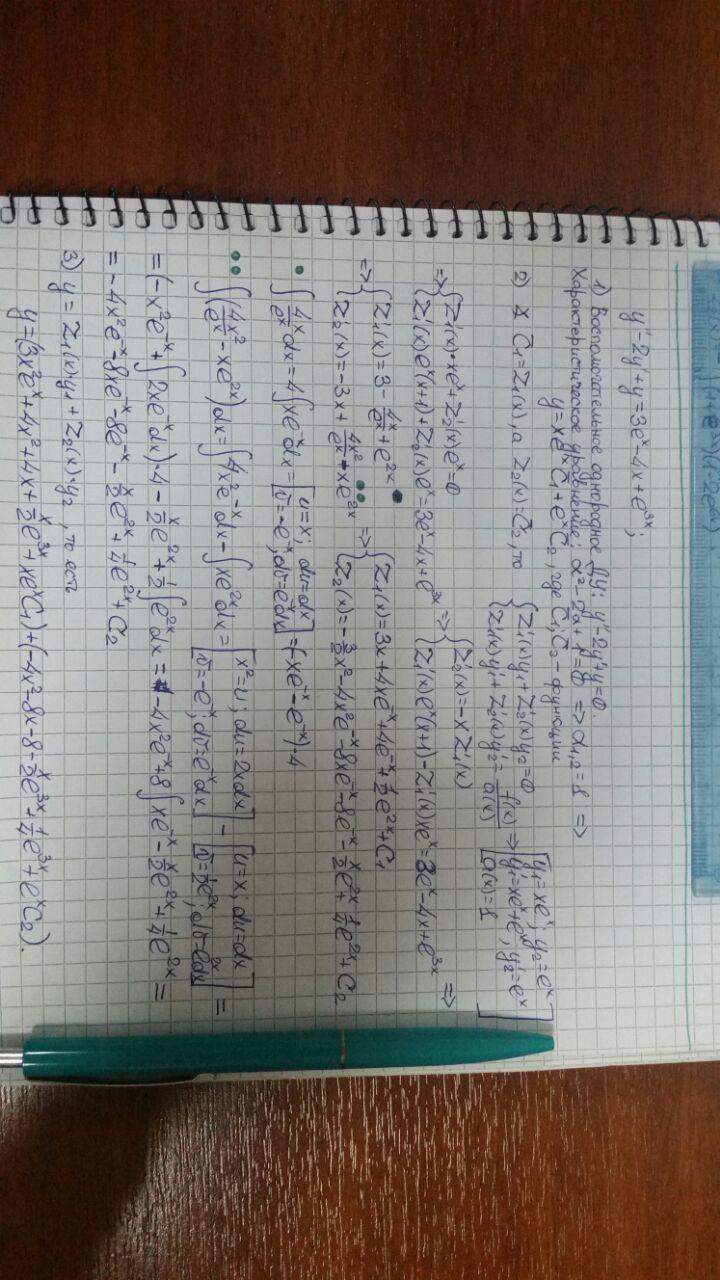 y″-2y′+y=3eˣ-4x+e³ˣ;
1) Вспомогательное однородное ДУ: y″-2y′+y=0.
Характеристическое уравнение: α²-2α+1=0 => α₁,₂=1 =>
y=xeˣC₁+eˣC₂, где C₁;C₂ - функции
2) ∢ C₁=Z₁(x), а Z₂(x)=C₂, то {Z₁′(x)y₁+Z₂′(x)y₂=0 {Z₁′(x)y₁′+Z₂′(x)y₂′=f(x)/a(x) => [y₁=xeˣ; y₂=eˣ y₁′=xeˣ+eˣ, y₂′=eˣ a(x)=1]
=> {Z₁′(x)·xeˣ+Z₂′(x)eˣ=0 {Z₁′(x)eˣ(x+1)+Z₂′(x)eˣ=3eˣ-4x+e³ˣ => {Z₂′(x)=-xZ₁′(x) {Z₁′(x)eˣ(x+1)-Z₁′(x)xeˣ=3eˣ-4x+e³ˣ =>
=> {Z₁′(x)=3-4x/eˣ+e²ˣ {Z₂′(x)=-3x+4x²/eˣ-xe²ˣ => {Z₁(x)=3x+4xe⁻ˣ+4e⁻ˣ+½e²ˣ+C₁ {Z₂(x)=-3/2x²-4x²e⁻ˣ-8xe⁻ˣ-8e⁻ˣ-x/2e²ˣ+¼e²ˣ+C₂
• ∫4x/eˣdx=4∫xe⁻ˣdx=[u=x; du=dx v=-e⁻ˣ; dv=e⁻ˣdx]=(-xe⁻ˣ-e⁻ˣ)·4
•• ∫(4x²/eˣ-xe²ˣ)dx=∫4x²e⁻ˣdx-∫xe²ˣdx=[x²=u; du=2xdx v=-e⁻ˣ; dv=e⁻ˣdx]-[u=x; du=dx v=½e²ˣ; dv=e²ˣdx]=
=(-x²e⁻ˣ+∫2xe⁻ˣdx)·4-x/2e²ˣ+½∫e²ˣdx=-4x²e⁻ˣ+8∫xe⁻ˣ-x/2e²ˣ+¼e²ˣ=
=-4x²e⁻ˣ-8xe⁻ˣ-8e⁻ˣ-x/2e²ˣ+¼e²ˣ+C₂
3) y=Z₁(x)y₁+Z₂(x)·y₂, то есть
y=(3x²eˣ+4x²+4x+x/2e³ˣ+xeˣC₁)+(-4x²-8x-8-x/2e³ˣ+¼e³ˣ+eˣC₂).